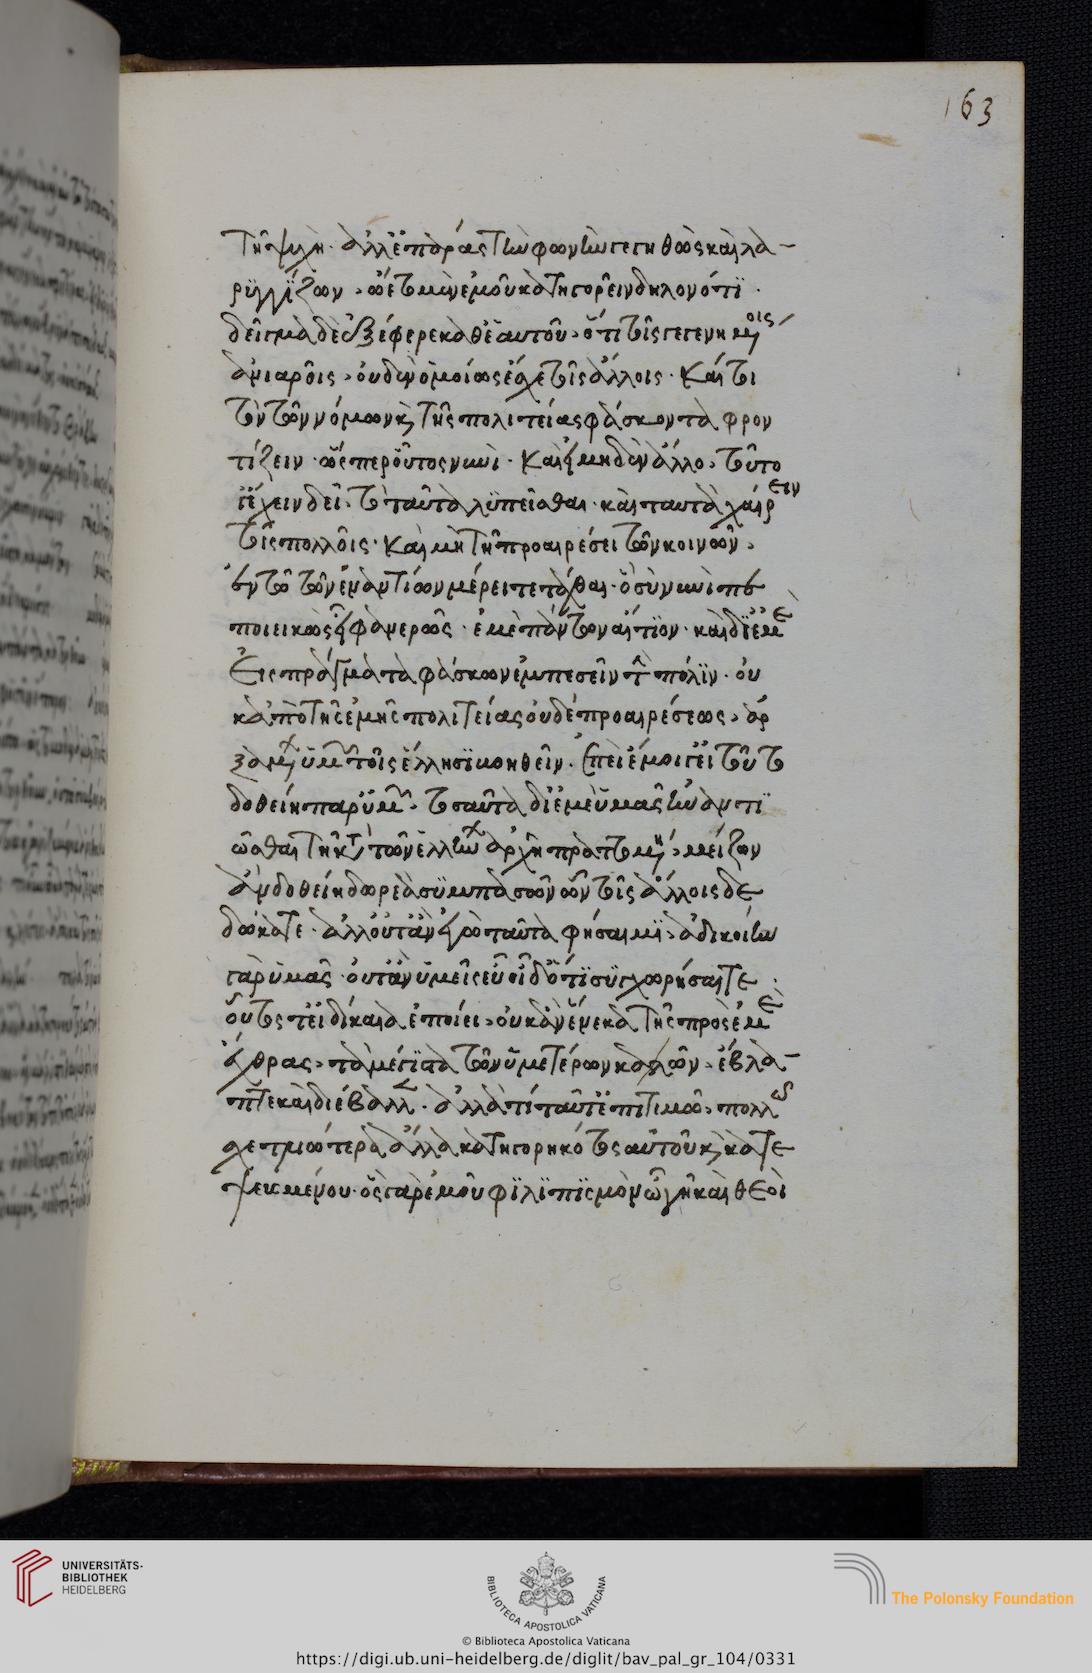 τῆ ψυχῆ· ἀλλ' ἐπάρας τὴν φωνὴν γεγηθὼς καὶ λα-
ρυγγίζων, ὤετο μὲν ἐμοῦ κατηγορεῖν δηλονότι·
δεῖγμα δὲ ἐξέφερε καθ' ἑαυτοῦ, ὅτι τοῖς γεγενημένοις
ἀνιαροῖς, οὐδὲν ὁμοίως ἔσχε τοῖς ἄλλοις· καίτοι
τὸν τῶν νόμων καὶ τῆς πολιτείας φάσκοντα φρον
τίζειν· ὥσπερ οὗτος νυνί· καὶ εἰ μηδὲν ἄλλο, τοῦτο
γ' ἔχειν δεῖ, τὸ ταῦτα λυπεῖσθαι· καὶ ταυτὰ χαίρειν
τοῖς πολλοῖς· καὶ μὴ τῆ προαιρέσει τῶν κοινῶν,
ἐν τῶ τῶν ἐναντίων μέρει τετάχθαι· ὃ σὺ νυνὶ πε
ποιεικὼς εἶ φανερῶς· ἐμὲ πάντων αἴτιον· καὶ δι' ἐμὲ
εἰς πράγματα φάσκων ἐμπεσεῖν τὴν πόλιν· οὐ
κ ἀπὸ τῆς ἐμῆς πολιτείας οὐδὲ προαιρέσεως, ἀρ
ξαμένων ὑμῶν τοῖς ἕλλησι βοηθεῖν· ἐπεὶ ἔμοιγ' εἰ τοῦτο
δοθείη παρ' ὑμῶν, τοσαῦτα δι' ἐμὲ ὑμᾶς ἠναντι
ῶσθαι τῆ κατὰ τῶν ἑλλήνων ἀρχῆ πραττομένη, μείζων
ἂν δοθείη δωρεὰ συμπασῶν ὧν τοῖς ἄλλοις δε
δώκατε· ἀλλ' οὔτ' ἂν ἐγὼ ταῦτα φήσαιμι, ἀδικοίην
γὰρ ὑμᾶς· οὔτ' ἂν ὑμεῖς εὖ οἶδ' ὅτι συγχωρήσαιτε·
οὗτος τ' εἰ δίκαια ἐποίει, οὐκ ἂν ἕνεκα τῆς πρὸς ἐμὲ
ἔχθρας, τὰ μέγιστα τῶν ὑμετέρων καλῶν, ἔβλα-
πτε καὶ διέβαλλεν· ἀλλὰ τί ταῦτ' ἐπιτιμῶ, πολλῶ
σχετλιώτερα ἄλλα κατηγορηκότος αὐτοῦ καὶ κατε
ψευσμένου· ὃς γὰρ ἐμοῦ φιλιππισμὸν ὦ γῆ καὶ θεοὶ
163
UNIVERSITÄTS-
BIBLIOTHEK
HEIDELBERG
BIBLIOTECA APOSTOLICA VATICANA
The Polonsky Foundation
© Biblioteca Apostolica Vaticana
https://digi.ub.uni-heidelberg.de/diglit/bav_pal_gr_104/0331